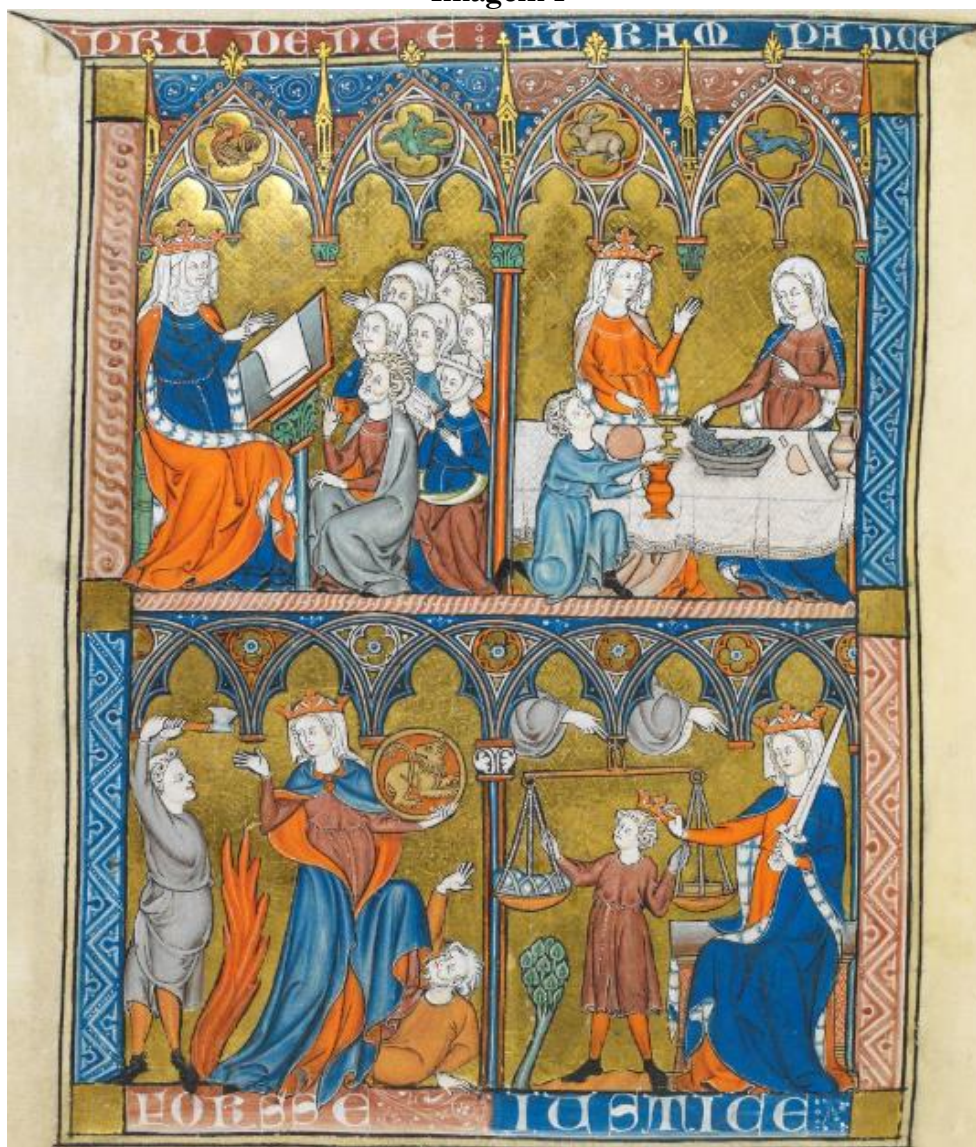 Imagem 1
PRUDENCE : ATRAMPANCE
FORSSE IUSTICE